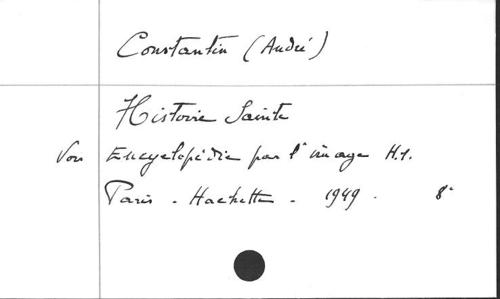 Constantin (André)
Histoire Sainte
Voir Encyclopédie par l'image H.1.
Paris - Hachette - 1949. 8°